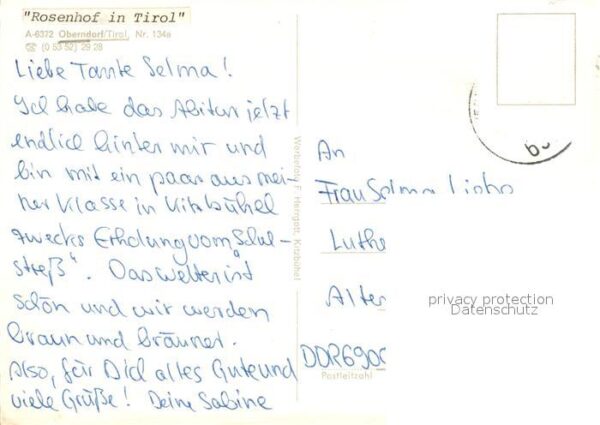 "Rosenhof in Tirol"
A-6372 Oberndorf/Tirol, Nr. 134a
☏ (0 53 52) 29 28
Liebe Tante Selma!
Ich habe das Abitur jetzt
endlich hinter mir und
bin mit ein paar aus mei-
ner Klasse in Kitzbühel
zwecks Erholung vom „Schul-
streß". Das Wetter ist
schön und wir werden
braun und bräuner.
Also, für Dich alles Gute und
viele Grüße! Deine Sabine
Werbefoto F. Herrgott, Kitzbühel
An
Frau Selma
Luthe
Alter
DDR 690
Postleitzahl
privacy protection
Datenschutz